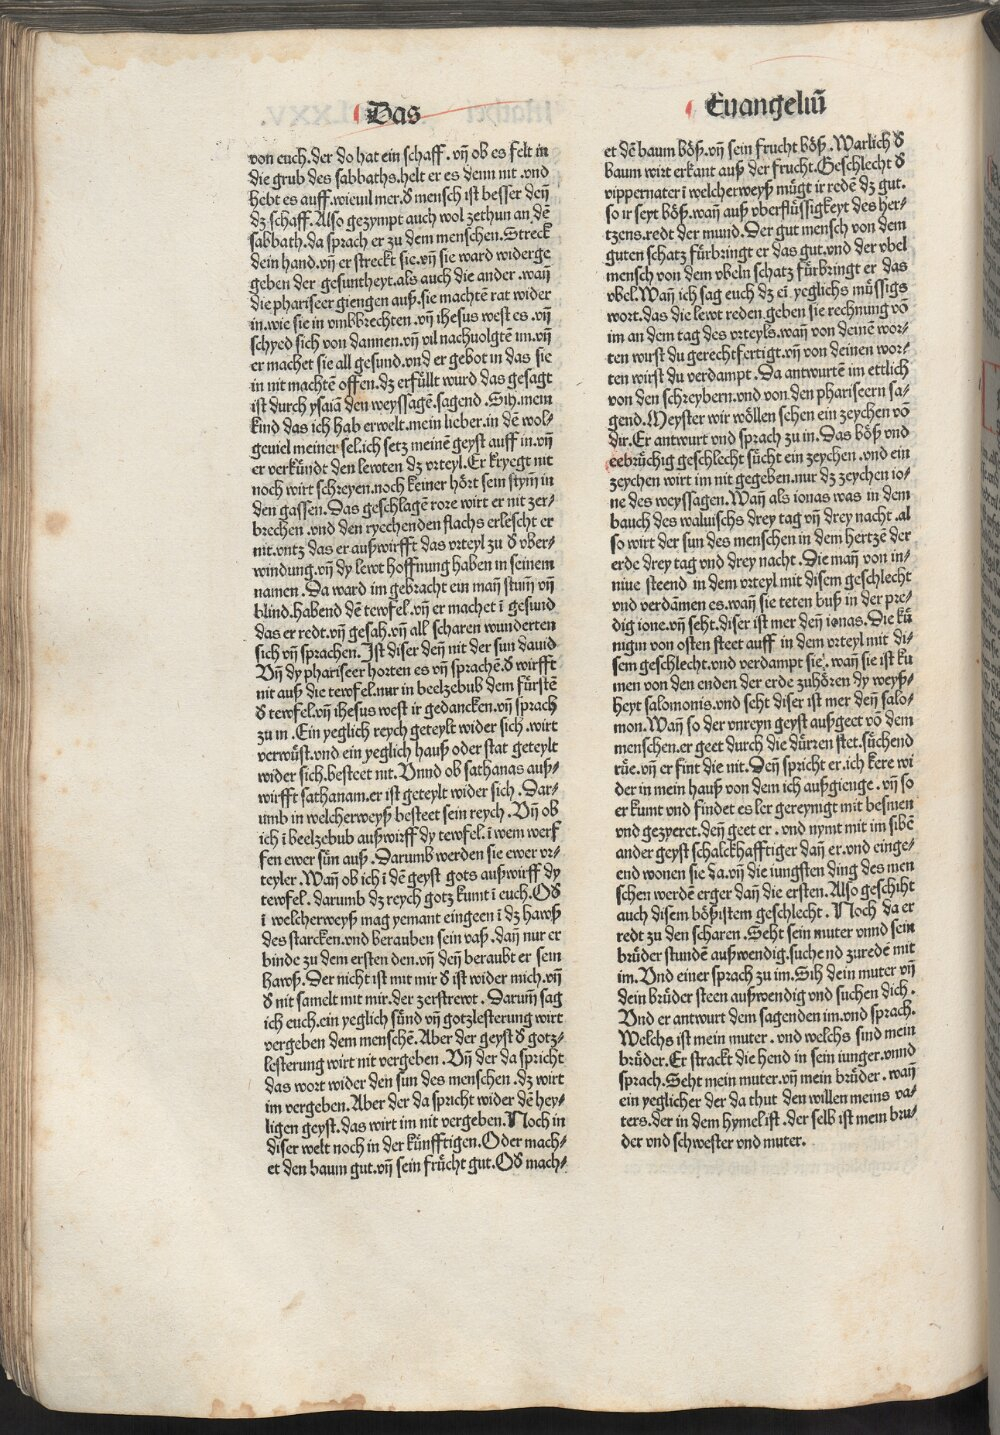 Das
Euangeliū
von euch.der do hat ein schaff. vñ ob es felt in
die grub des sabbaths.helt er es denn nit .vnd
hebt es auff.wieuil mer.d̄ mensch ist besser deñ
dz schaff.Also gezympt auch wol zethun an dē
sabbath.da sprach er zu dem menschen.Streck
dein hand.vñ er streckt sie.vñ sie ward widerge
geben der gesuntheyt.als auch die ander .wañ
die phariseer giengen auß.sie machtē rat wider
in.wie sie in vmbbrechten .vñ ihesus west es .vñ
schyed sich von dannen.vñ vil nachuolgtē im.vñ
er machet sie all gesund.vnd er gebot in das sie
in nit machtē offen.dz erfüllt wurd das gesagt
ist durch ysaiā den weyssagē.sagend .Sih.mein
kind das ich hab erwelt.mein lieber.in dē wol⸗
geuiel meiner sel.ich setz meinē geyst auff in.vñ
er verkündt den lewten dz vrteyl.Er kryegt nit
noch wirt schreyen.noch keiner hört sein stym̄ in
den gassen.Das geschlagē rore wirt er nit zer⸗
brechen .vnd den ryechenden flachs erlescht er
nit.vntz das er außwirfft das vrteyl zu d̄ vber⸗
windung.vñ dy lewt hoffnung haben in seinem
namen .Da ward im gebracht ein mañ stum̄ vñ
blind.habend dē tewfel.vñ er machet ī gesund
das er redt.vñ gesah.vñ all scharen wunderten
sich vñ sprachen.Ist diser deñ nit der sun dauid
Vñ dy phariseer horten es vñ sprachē.d̄ wirfft
nit auß die tewfel.nur in beelzebub dem fürstē
d̄ tewfel.vñ ihesus west ir gedancken.vñ sprach
zu in .Ein yeglich reych geteylt wider sich .wirt
verwüst.vnd ein yeglich hauß oder stat geteylt
wider sich.besteet nit.Vnnd ob sathanas auß⸗
wirfft sathanam.er ist geteylt wider sich .Dar⸗
umb in welcherweyß besteet sein reych .Vñ ob
ich ī beelzebub außwirff dy tewfel.ī wem werf
fen ewer sün auß .Darumb werden sie ewer vr⸗
teyler .Wañ ob ich ī dē geyst gots außwirff dy
tewfel. darumb dz reych gotz kumt ī euch.Od̄
ī welcherweyß mag yemant eingeen ī dz hawß
des starcken.vnd berauben sein vaß .dañ nur er
binde zu dem ersten den.vñ deñ beraubt er sein
hawß.Der nicht ist mit mir d̄ ist wider mich.vñ
d̄ nit samelt mit mir.der zerstrewt .Darum̄ sag
ich euch.ein yeglich sünd vñ gotzlesterung wirt
vergeben dem menschē.Aber der geyst d̄ gotz⸗
lesterung wirt nit vergeben .Vñ der da spricht
das wort wider den sun des menschen .dz wirt
im vergeben.Aber der da spricht wider dē hey⸗
ligen geyst.das wirt im nit vergeben.Noch in
diser welt noch in der künfftigen.Oder mach⸗
et den baum gut.vñ sein frücht gut.Od̄ mach⸗
et dē baum böß.vñ sein frucht böß .Warlich d̄
baum wirt erkant auß der frucht.Geschlecht d̄
vippernater ī welcherweyß mügt ir redē dz gut.
so ir seyt böß.wañ auß vberflüssigkeyt des her⸗
tzens.redt der mund.Der gut mensch von dem
guten schatz fürbringt er das gut.vnd der vbel
mensch von dem vbeln schatz fürbringt er das
vbel.Wañ ich sag euch dz eī yeglichs müssigs
wort.das die lewt reden.geben sie rechnung vō
im an dem tag des vrteyls.wañ von deinē wor⸗
ten wirst du gerechtfertigt.vñ von deinen wor⸗
ten wirst du verdampt .Da antwurtē im ettlich
von den schreybern.vnd von den phariseern sa⸗
gend.Meyster wir wöllen sehen ein zeychen vō
dir.Er antwurt vnd sprach zu in.Das böß vnd
eebrüchig geschlecht sücht ein zeychen .vnd ein
zeychen wirt im nit gegeben.nur dz zeychen io⸗
ne des weyssagen.Wañ als ionas was in dem
bauch des waluischs drey tag vñ drey nacht .al
so wirt der sun des menschen in dem hertzē der
erde drey tag vnd drey nacht .Die mañ von in⸗
niue steend in dem vrteyl mit disem geschlecht
vnd verdāmen es.wañ sie teten buß in der pre⸗
dig ione.vñ seht.diser ist mer deñ ionas.Die kü
nigin von osten steet auff in dem vrteyl mit di⸗
sem geschlecht.vnd verdampt sie. wañ sie ist ku
men von den enden der erde zuhören dy weyß⸗
heyt salomonis.vnd seht diser ist mer deñ salo⸗
mon.Wañ so der vnreyn geyst außgeet vō dem
menschen.er geet durch die dürren stet.süchend
rüe.vñ er fint die nit.Deñ spricht er.ich kere wi
der in mein hauß von dem ich außgienge .vñ so
er kumt vnd findet es ler gereynigt mit besmen
vnd gezyeret.deñ geet er . vnd nymt mit im sibē
ander geyst schalckhafftiger dañ er.vnd einge⸗
end wonen sie da.vñ die iungsten ding des men
schen werdē erger dañ die ersten.Also geschiht
auch disem bößistem geschlecht .Noch da er
redt zu den scharen .Seht sein muter vnnd sein
brüder stundē außwendig.suche nd zuredē mit
im.Vnd einer sprach zu im.Sih dein muter vñ
dein brüder steen außwendig vnd suchen dich .
Vnd er antwurt dem sagenden im.vnd sprach.
Welchs ist mein muter . vnd welchs sind mein
brüder.Er strackt die hend in sein iunger.vnnd
sprach.Seht mein muter.vñ mein brüder .wañ
ein yeglicher der da thut den willen meins va⸗
ters.der in dem hymel ist .der selb ist mein bru⸗
der vnd schwester vnd muter.